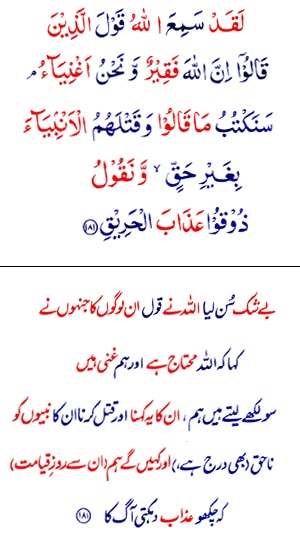 لَقَدْ سَمِعَ اللهُ قَوْلَ الَّذِيْنَ
قَالُوْۤا اِنَّ اللهَ فَقِيْرٌ وَّ نَحْنُ اَغْنِيَآءُ ۘ
سَنَكْتُبُ مَا قَالُوْا وَ قَتْلَهُمُ الْاَنْۢبِيَآءَ
بِغَيْرِ حَقٍّ ۙ وَّ نَقُوْلُ
ذُوْقُوْا عَذَابَ الْحَرِيْقِ ﴿۱۸۱﴾
بے شک سُن لیا اللہ نے قول ان لوگوں کا جنہوں نے
کہا کہ اللہ محتاج ہے اور ہم غنی ہیں
سو لکھے لیتے ہیں ہم ، ان کا یہ کہنا اور قتل کرنا ان کا نبیوں کو
ناحق (بھی درج ہے،) اور کہیں گے ہم (ان سے روزِ قیامت)
کہ چکھو عذاب دہکتی آگ کا ﴿۱۸۱﴾